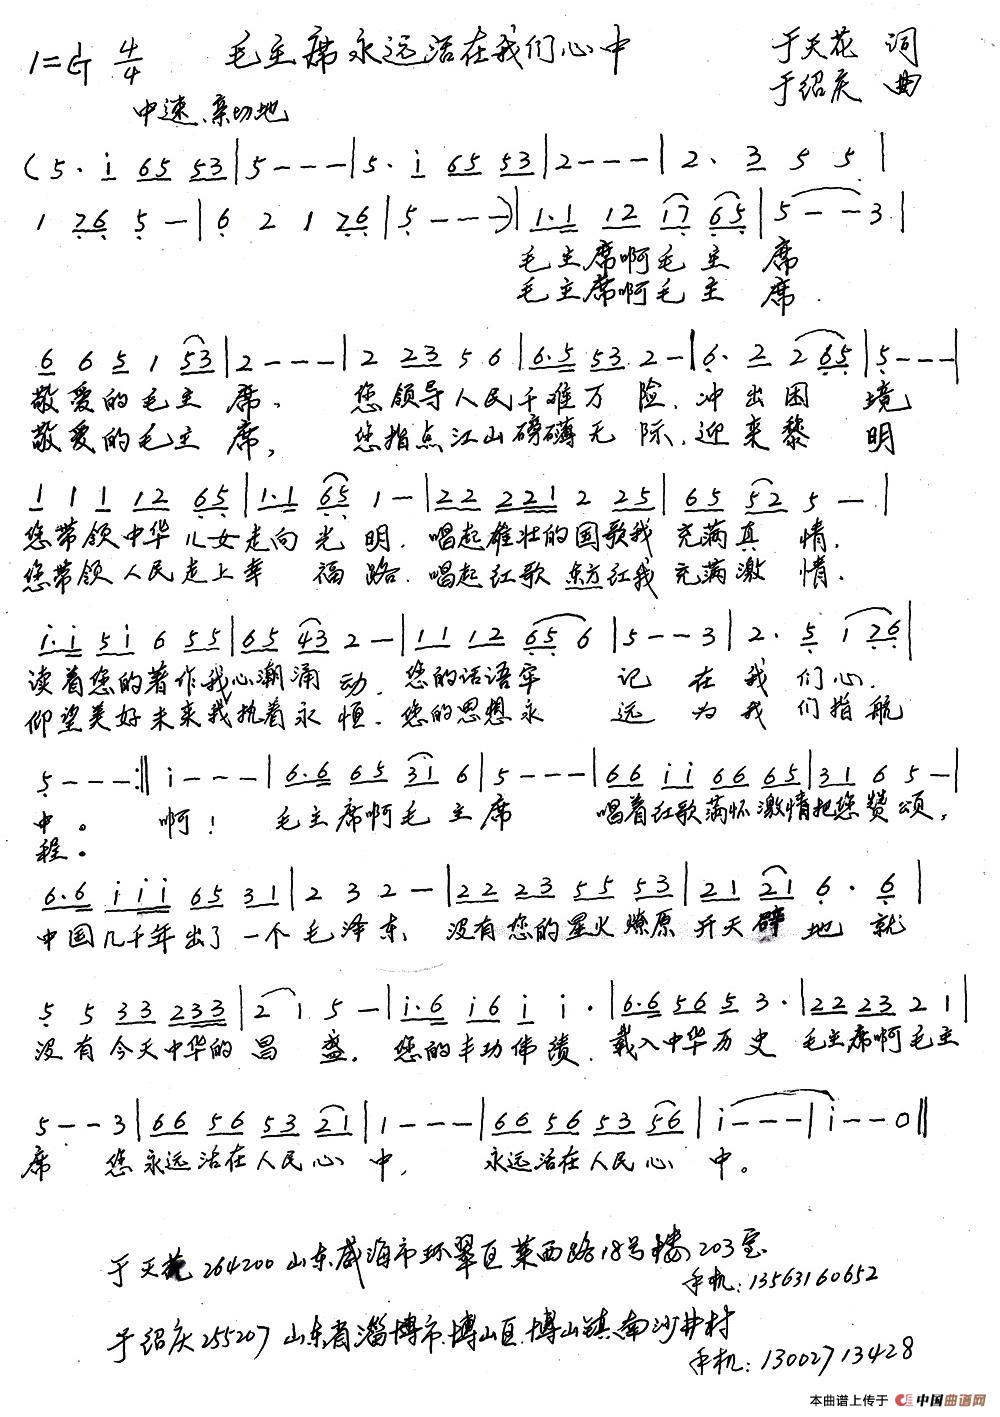 1=G 4/4 毛主席永远活在我们心中 于天花 词
中速、亲切地 于绍庆 曲
(5· i 65 53|5---|5· i 65 53|2---|2· 3 5 5|
1 276 5-|6 2 1 276|5---)|1·1 12 17 65|5--3|
毛主席啊毛主席
毛主席啊毛主席.
6 6 5 1 53|2---|2 23 5 6|6·5 53 2-|6· 2 2 65|5---|
敬爱的毛主席、 您领导人民千难万险、冲出困境
敬爱的毛主席, 您指点江山磅礴无际、迎来黎明
1 1 1 12 65|1·1 65 1-|22 221 2 25|65 52 5-|
您带领中华儿女走向光明. 唱起雄壮的国歌我充满真情.
您带领人民走上幸福路. 唱起红歌东方红我充满激情.
i·i 5i 6 55|65 43 2-|11 12 65 6|5--3|2· 5 1 26|
读着您的著作我心潮涌动. 您的话语牢记在我们心.
仰望美好未来我执着永恒. 您的思想永远为我们指航
5---:‖i---|6·6 65 31 6|5---|66 ii 66 65|31 6 5-|
中。 啊! 毛主席啊毛主席 唱着红歌满怀激情把您赞颂,
程。
6·6 iii 65 31|2 3 2-|22 23 55 53|21 21 6· 6|
中国几千年出了一个毛泽东、 没有您的星火燎原开天辟地就
5 5 33 233|2 1 5-|i·6 i6 i i·|6·6 56 5 3·|22 23 2 1|
没有今天中华的昌盛. 您的丰功伟绩. 载入中华历史 毛主席啊毛主
5--3|66 56 53 21|1---|66 56 53 56|i---|i--0‖
席 您永远活在人民心中, 永远活在人民心中。
于天花 264200 山东威海市环翠区莱西路18号楼203室
手机:13563160652
于绍庆 255207 山东省淄博市博山区博山镇南沙井村
手机:13002713428
本曲谱上传于 中国曲谱网